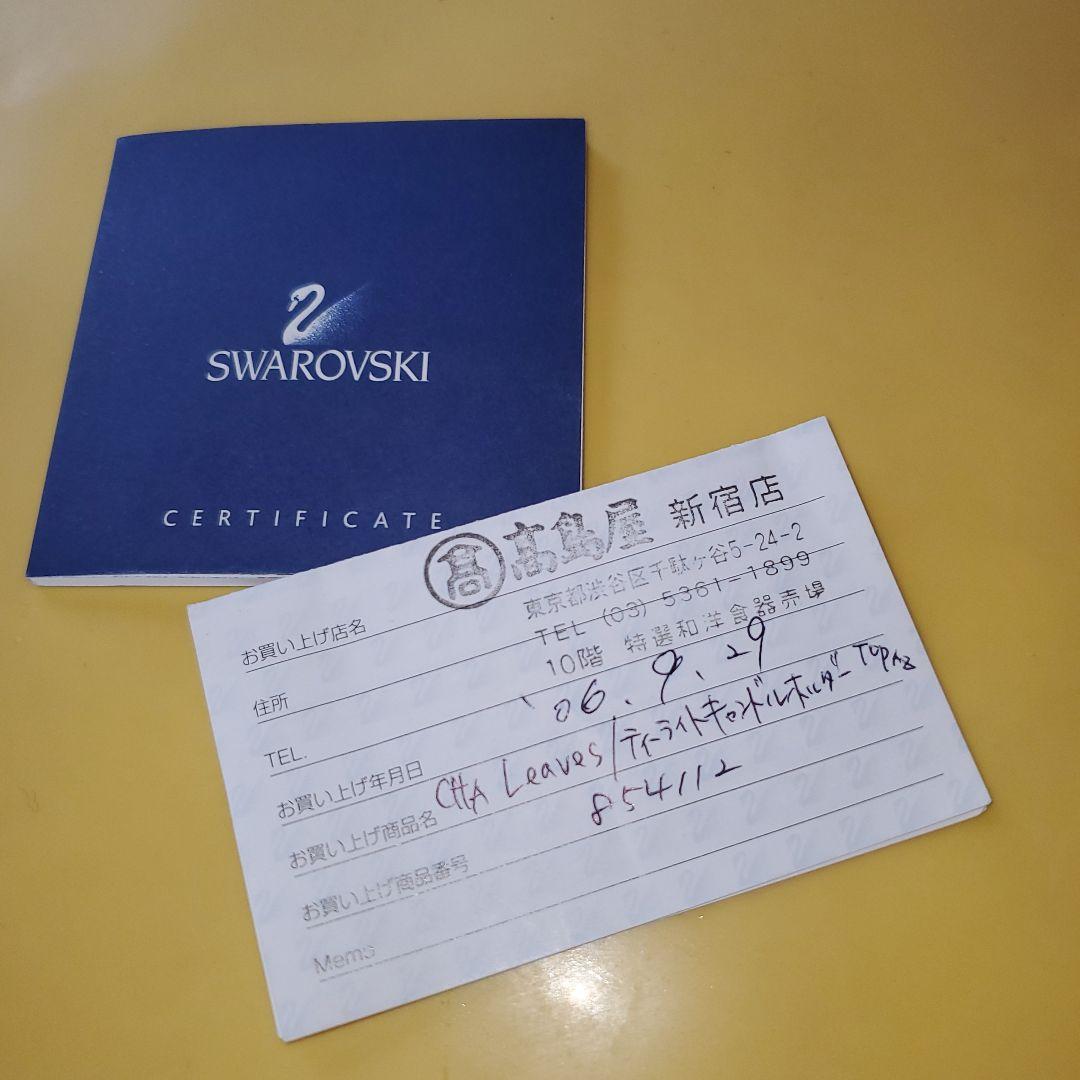 SWAROVSKI
CERTIFICATE
髙 髙島屋 新宿店
お買い上げ店名
東京都渋谷区千駄ヶ谷5-24-2
住所
TEL (03) 5361-1899
10階 特選和洋食器売場
TEL.
'06.9.29
お買い上げ年月日
CHA Leaves/ティーライトキャンドルホルダー TOPAZ
お買い上げ商品名
854112
お買い上げ商品番号
Memo